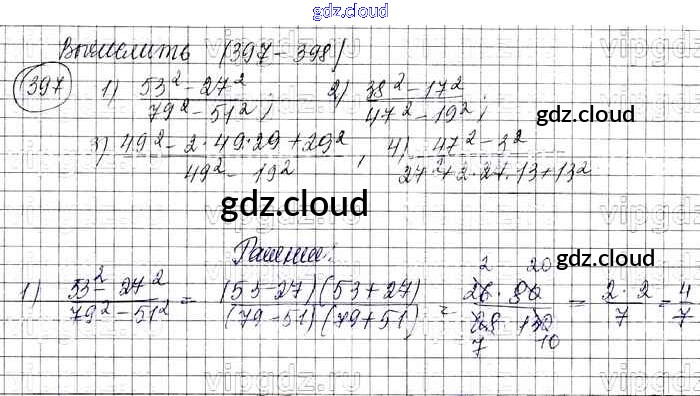 gdz.cloud
Вычислить (397-398)
397 1) 53² - 27² / 79² - 51² ; 2) 38² - 17² / 47² - 19² ;
gdz.cloud
3) 49² - 2·49·29 + 29² / 49² - 19² , 4) 47² - 3² / 27² + 2·27·13 + 13²
gdz.cloud
gdz.cloud
Решение:
1) 53² - 27² / 79² - 51² = (53-27)(53+27) / (79-51)(79+51) = 26·80 / 28·130 = 2·2 / 7 = 4/7
2 20
7 10